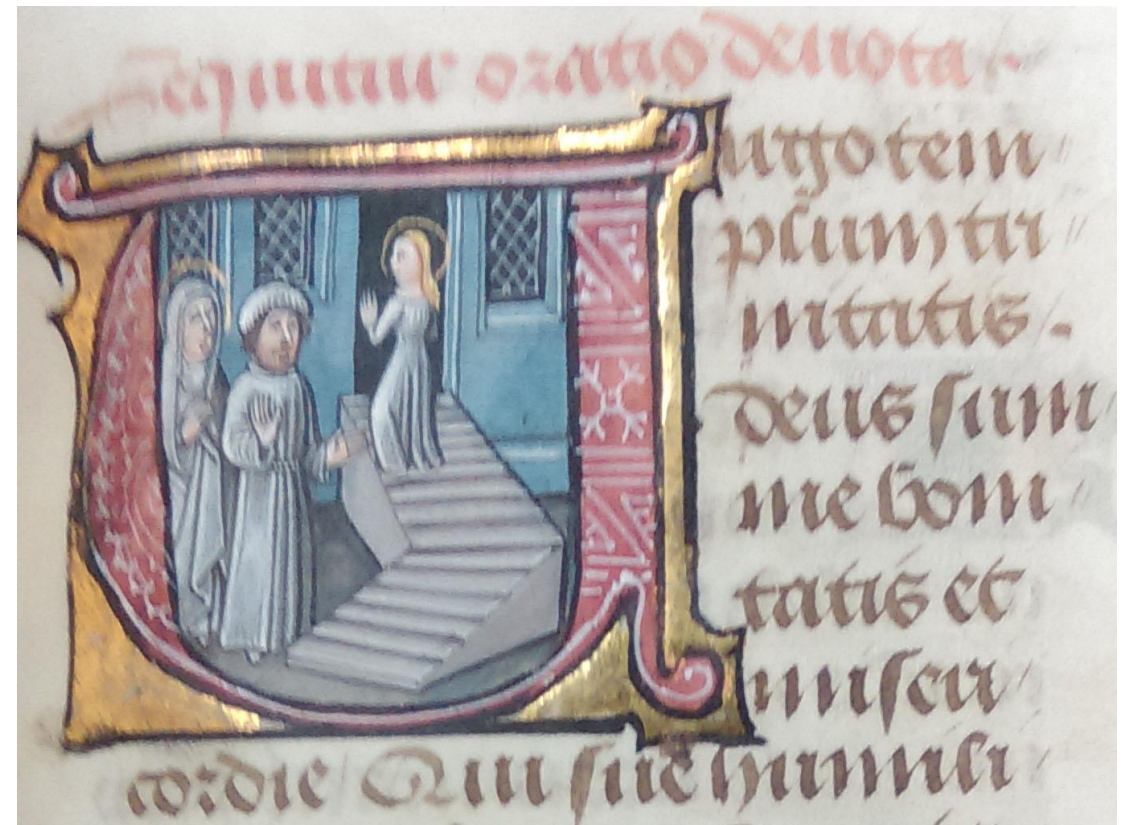 Sequitur oratio deuota.
Uirgo tem
plum tri
nitatis.
deus sum
me boni
tatis et
miseri
cordie Qui sue humili